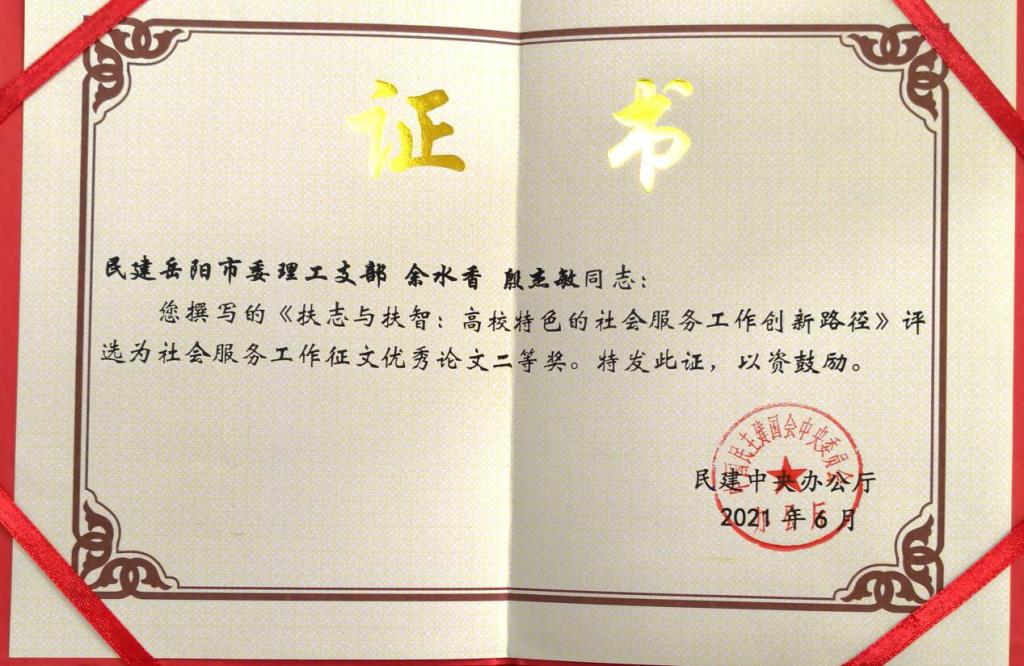 证 书
民建岳阳市委理工支部 余水香 殷杰敏同志：
您撰写的《扶志与扶智：高校特色的社会服务工作创新路径》评
选为社会服务工作征文优秀论文二等奖。特发此证，以资鼓励。
中国民主建国会中央委员会
民建中央办公厅
2021 年 6 月
办公厅